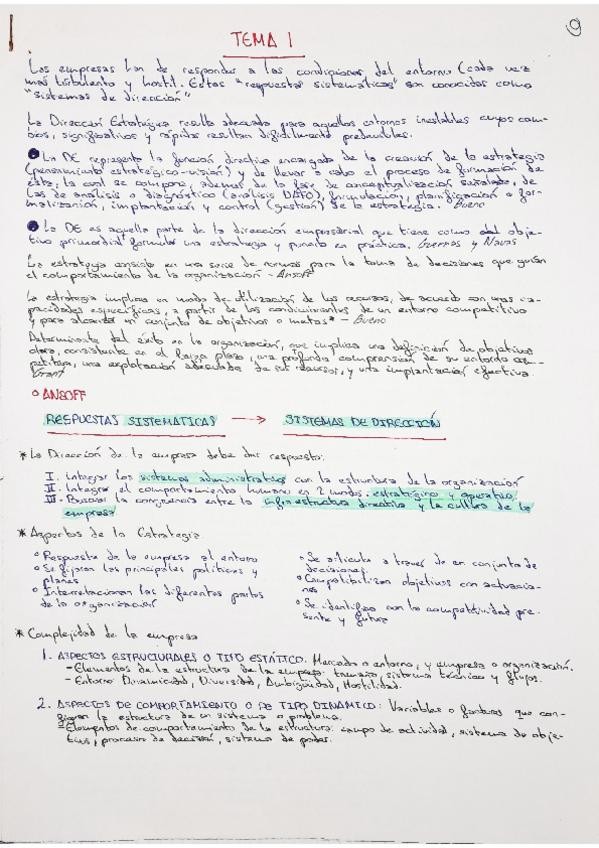 TEMA 1
Las empresas han de responder a las condiciones del entorno (cada vez
más turbulento y hostil. Estas "respuestas sistemáticas" son conocidas como
"sistemas de dirección"
La Dirección Estratégica resulta adecuada para aquellos entornos inestables cuyos cam-
bios, significativos y rápidos resultan difícilmente predecibles.
La DE representa la función directiva encargada de la creación de la estrategia
(pensamiento estratégico-visión) y de llevar a cabo el proceso de formación de
ésta, la cual se compone, además de la fase de conceptualización señalada, de
las de análisis o diagnóstico (análisis DAFO), formulación, planificación o for-
malización, implantación y control (gestión) de la estrategia. Bueno
La DE es aquella parte de la dirección empresarial que tiene como obje-
tivo primordial formular una estrategia y ponerla en práctica. Guerras y Navas
La estrategia consiste en una serie de normas para la toma de decisiones que guían
el comportamiento de la organización - Ansoff
La estrategia implica un modo de utilización de los recursos, de acuerdo con unas ca-
pacidades específicas, a partir de los condicionantes de un entorno competitivo
y para alcanzar un conjunto de objetivos o metas - Bueno
Determinante del éxito en la organización, que implica una definición de objetivos
clara, consistente en el largo plazo, una profunda comprensión de su entorno com-
petitivo, una explotación adecuada de sus recursos, y una implantación efectiva.
Grant
ANSOFF
RESPUESTAS SISTEMATICAS → SISTEMAS DE DIRECCIÓN
* La Dirección de la empresa debe dar respuesta:
I. Integrar los sistemas administrativos con la estructura de la organización
II. Integrar el comportamiento humano en 2 modos: estratégico y operativo
III. Buscar la congruencia entre la infraestructura directiva y la cultura de la
empresa
* Aspectos de la Estrategia
° Respuesta de la empresa al entorno
° Se fijaran las principales políticas y
planes
° Interrelacionan las diferentes partes
de la organización
° Se articula a través de un conjunto de
decisiones.
° Compatibilizan objetivos con actuacio-
nes
° Se identifica con la competitividad pre-
sente y futura
* Complejidad de la empresa
1. ASPECTOS ESTRUCTURALES O TIPO ESTÁTICO: Mercado o entorno, y empresa u organización.
- Elementos de la estructura de la empresa: tamaño, sistema técnico y grupos.
- Entorno: Dinamicidad, Diversidad, Ambigüedad, Hostilidad.
2. ASPECTOS DE COMPORTAMIENTO O DE TIPO DINÁMICO: Variables o factores que con-
la estructura de un sistema o problema.
- Elementos de comportamiento de la estructura: campo de actividad, sistema de obje-
tivos, proceso de decisión, sistema de poder.